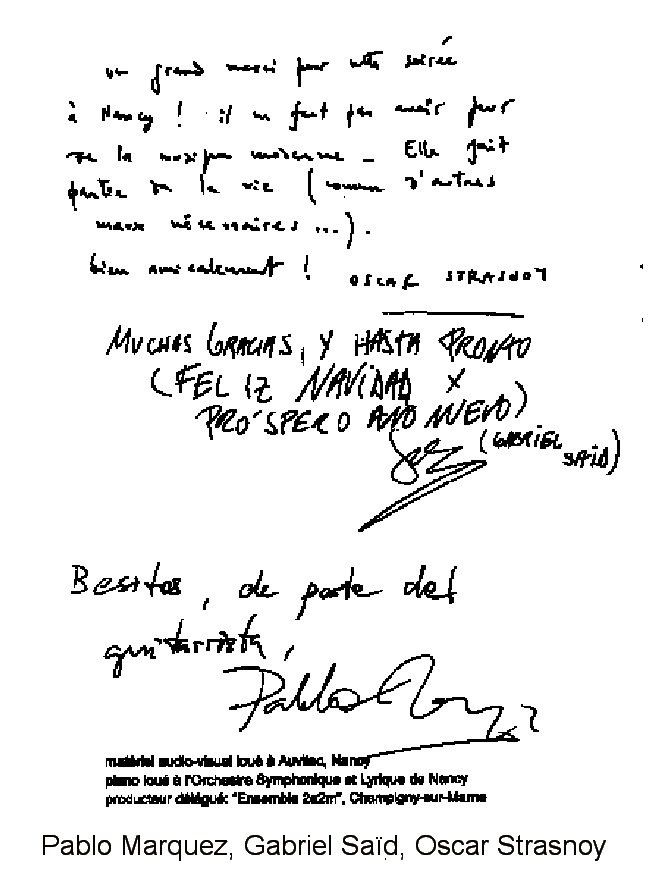 un grand merci pour cette soirée
à Nancy ! il ne faut pas avoir peur
de la musique moderne _ Elle fait
partie de la vie (comme d'autres
maux nécessaires ...).
bien amicalement ! OSCAR STRASNOY
MUCHAS GRACIAS, Y HASTA PRONTO
(FELIZ NAVIDAD Y
PRÓSPERO AÑO NUEVO)
(GABRIEL
SAÏD)
Besitos, de parte del
guitarrista,
Pablo
matériel audio-visuel loué à Auvitec, Nancy
piano loué à l'Orchestre Symphonique et Lyrique de Nancy
producteur délégué: "Ensemble 2e2m", Champigny-sur-Marne
Pablo Marquez, Gabriel Saïd, Oscar Strasnoy